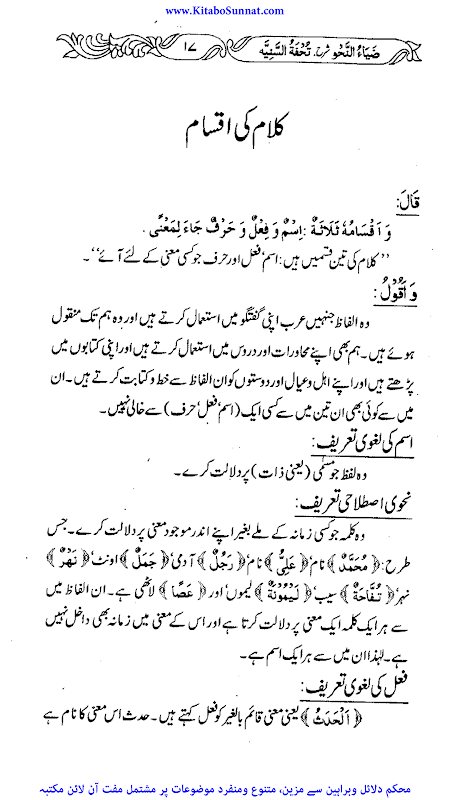 www.KitaboSunnat.com
ضَيَاءُ النَّحْو شرح تُحْفَةُ السَّنِيَّه ١٧
کلام کی اقسام
قَالَ:
وَ اَقْسَامُهٗ ثَلَاثَةٌ :اِسْمٌ وَ فِعْلٌ وَ حَرْفٌ جَاءَ لِمَعْنًى .
’’ کلام کی تین قسمیں ہیں: اسم‘ فعل اور حرف جو کسی معنی کے لئے آئے‘‘۔
وَ اَقُوْلُ:
وہ الفاظ جنہیں عرب اپنی گفتگو میں استعمال کرتے ہیں اور وہ ہم تک منقول
ہوئے ہیں۔ ہم بھی اپنے محاورات اور دروس میں استعمال کرتے ہیں اور اپنی کتابوں میں
پڑھتے ہیں اور اپنے اہل و عیال اور دوستوں کو ان الفاظ سے خط و کتابت کرتے ہیں۔ ان
میں سے کوئی بھی ان تین میں سے کسی ایک (اسم‘ فعل‘ حرف) سے خالی نہیں۔
اسم کی لغوی تعریف:
وہ لفظ جو مسمّٰی (یعنی ذات) پر دلالت کرے۔
نحوی اصطلاحی تعریف:
وہ کلمہ جو کسی زمانہ کے ملے بغیر اپنے اندر موجود معنی پر دلالت کرے۔ جس
طرح: ﴿مُحَمَّدٌ﴾ نام‘ ﴿عَلِيٌّ﴾ نام‘ ﴿رَجُلٌ﴾ آدمی‘ ﴿جَمَلٌ﴾ اونٹ‘ ﴿نَهْرٌ﴾
نہر‘ ﴿تُفَّاحَةٌ﴾ سیب‘ ﴿لَيْمُوْنَةٌ﴾ لیموں‘ اور ﴿عَصًا﴾ لاٹھی ہے۔ ان الفاظ میں
سے ہر ایک کلمہ ایک معنی پر دلالت کرتا ہے اور اس کے معنی میں زمانہ بھی داخل نہیں
ہے۔ لہٰذا ان میں سے ہر ایک اسم ہے۔
فعل کی لغوی تعریف:
﴿اَلْحَدَثُ﴾ یعنی معنی قائم بالغیر کو فعل کہتے ہیں۔ حدث اس معنی کا نام ہے
محکم دلائل وبراہین سے مزین، متنوع ومنفرد موضوعات پر مشتمل مفت آن لائن مکتبہ